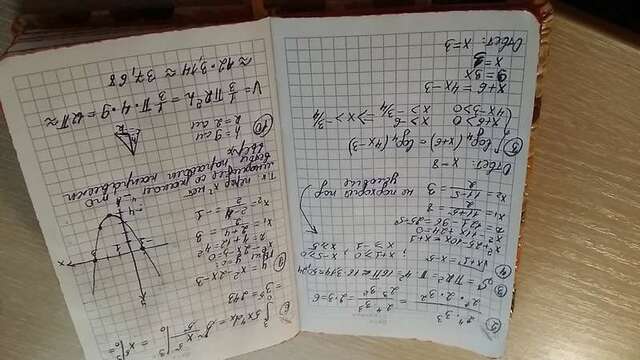 ②
2⁴ · 3³ / 2⁴ · 2 · 3² = 2⁴ · 3³ / 2³ · 3² = 2 · 3 = 6
③ S = πR² = π · 4² = 16π ≈ 16 · 3,14 = 50,24
④ √(x+1) = x-5 ; x+1≥0 ; x-5≥0
x²+25-10x = x+1 x ≥ -1 x ≥ 5
x² - 11x + 24 = 0
D = 121 - 96 = 25 = 5²
x₁ = (11+5)/2 = 8
x₂ = (11-5)/2 = 3 не подходит под
условие
Ответ: x = 8
⑤ log₄(x+6) = log₄(4x-3)
{ x+6 > 0 x > -6 ⇒ x > -3/4
4x-3 > 0 x > -3/4
x+6 = 4x-3
9 = 3x
x = 3
Ответ: x = 3
⑥ ∫₀³ 5x⁴dx = 5 · x⁵/5 |₀³ = x⁵ |₀³ =
= 3⁵ = 243
⑨ y = x² - 2x - 3
x² - 2x - 3 = 0
D = 4 + 12 = 4²
x₁ = (2+4)/2 = 3
x₂ = (2-4)/2 = -1
y
x
-4
Т.к. перед x² нет
то
ветви параболы направлены
вверх
⑩ h = 9 см
R = 2 см
R
V = 1/3 πR²h = 1/3 π · 4 · 9 = 12π ≈
≈ 12 · 3,14 ≈ 37,68